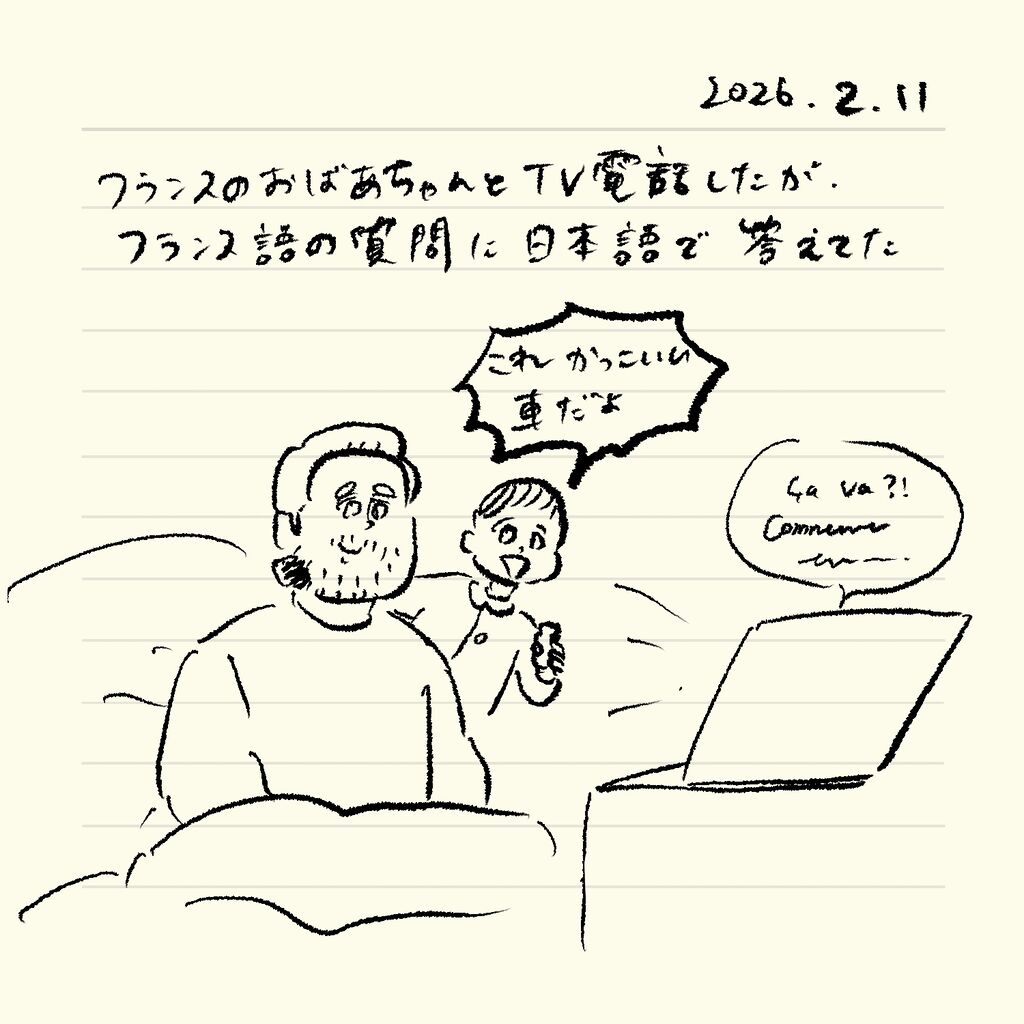 2026.2.11
フランスのおばあちゃんとTV電話したが、
フランス語の質問に日本語で答えてた
これ かっこいい
車だよ
Ça va?!